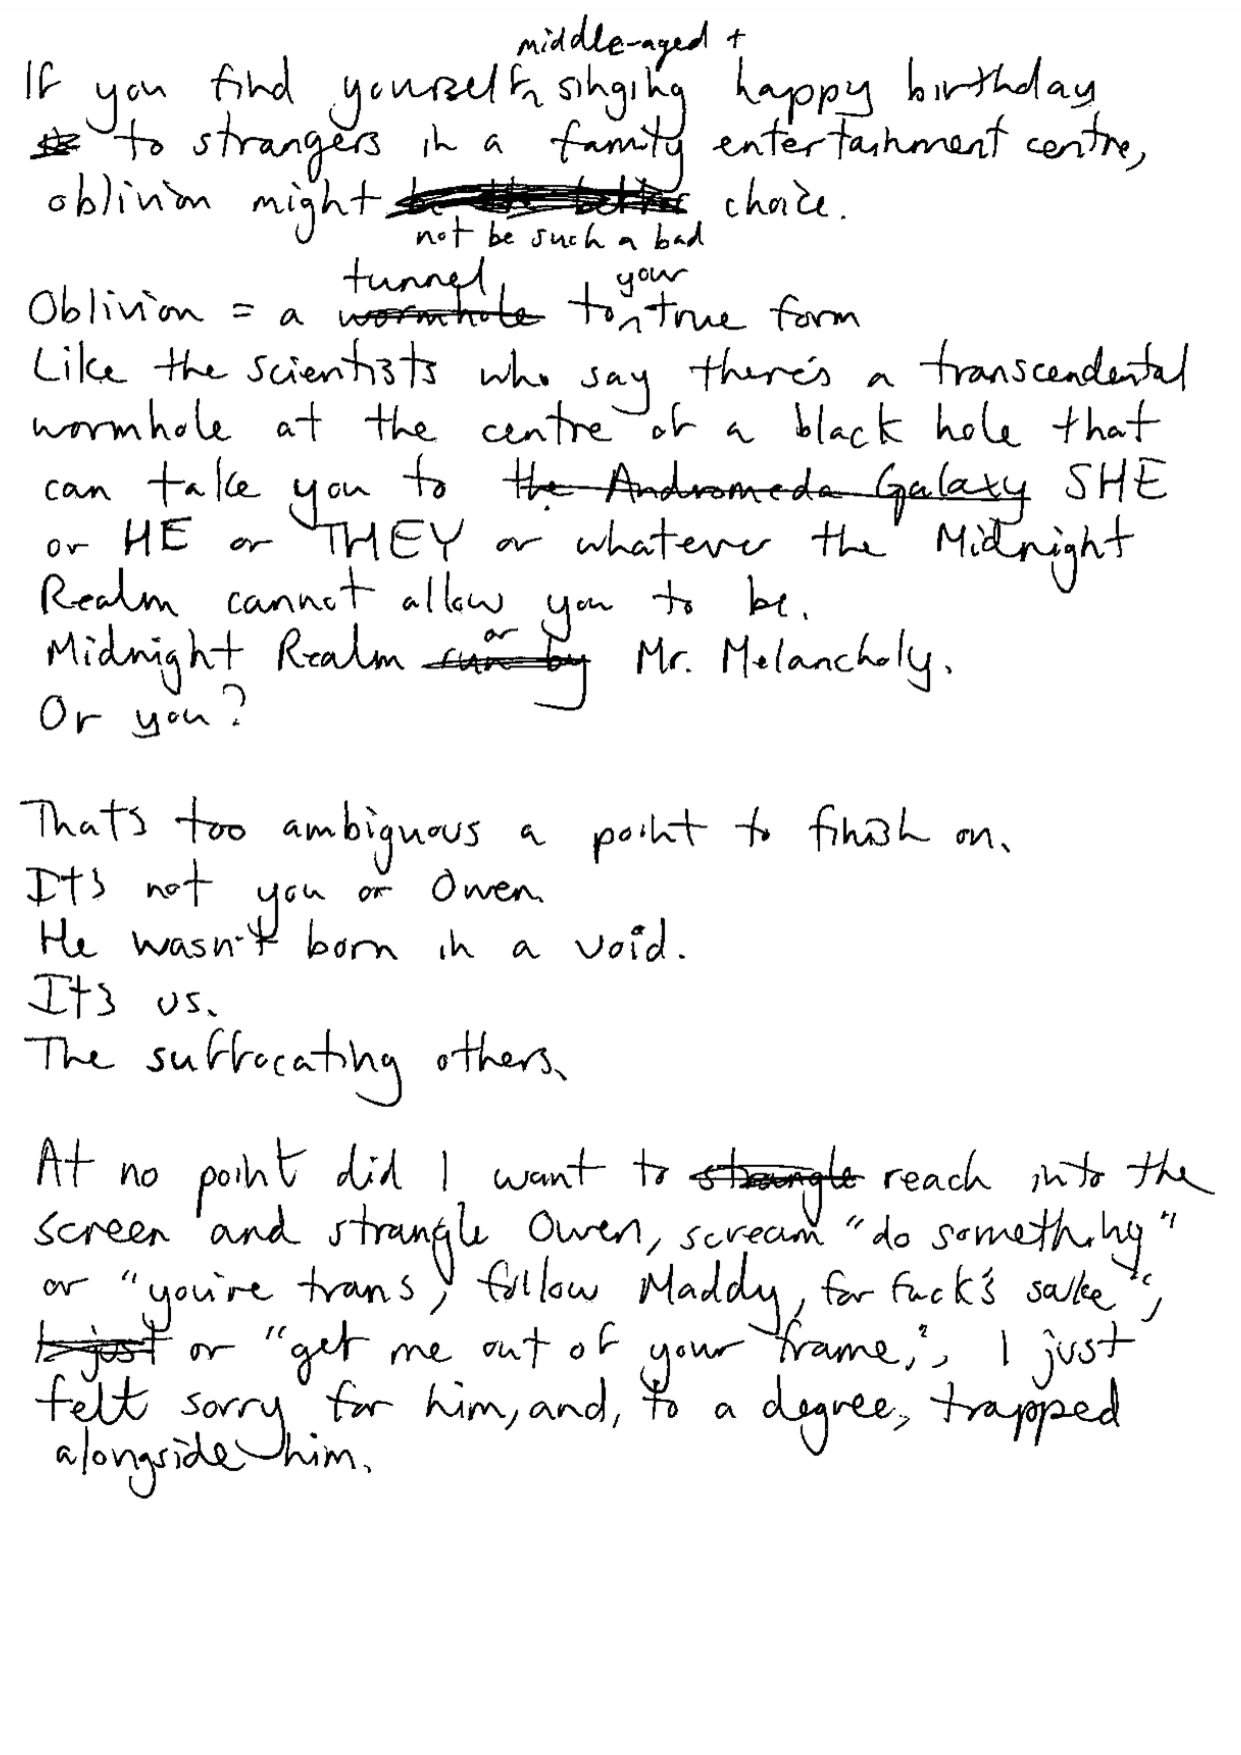 middle-aged +
If you find yourself singing happy birthday
to strangers in a family entertainment centre,
oblivion might be the better choice.
not be such a bad
tunnel your
Oblivion = a wormhole to true form
Like the scientists who say there's a transcendental
wormhole at the centre of a black hole that
can take you to the Andromeda Galaxy SHE
or HE or THEY or whatever the Midnight
Realm cannot allow you to be.
or
Midnight Realm run by Mr. Melancholy.
Or you?
That's too ambiguous a point to finish on.
It's not you or Owen.
He wasn't born in a void.
It's us.
The suffocating others.
At no point did I want to strangle reach into the
screen and strangle Owen, scream "do something"
or "you're trans, follow Maddy, for fuck's sake",
I just or "get me out of your frame,", I just
felt sorry for him, and, to a degree, trapped
alongside him.